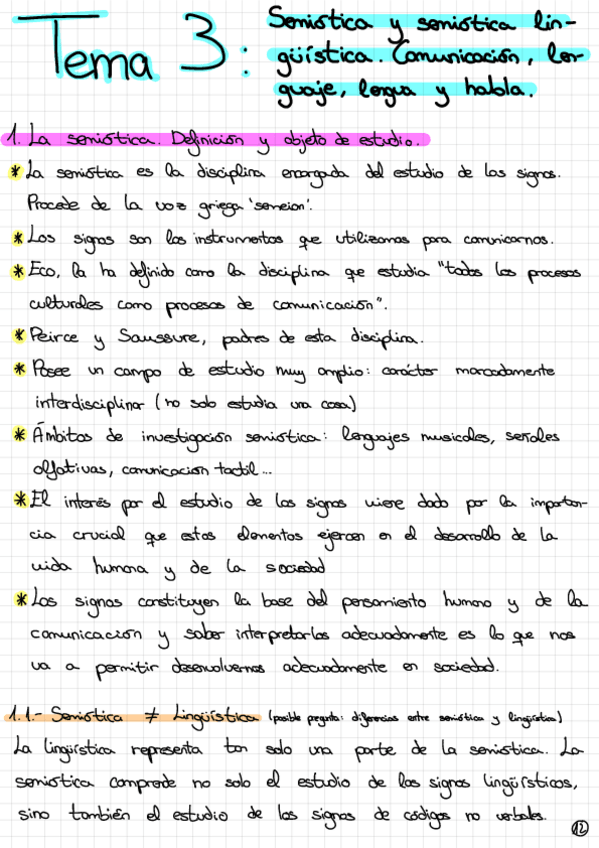 Tema 3: Semiótica y semiótica lin-
güística. Comunicación, len-
guaje, lengua y habla.
1. La semiótica. Definición y objeto de estudio.
* La semiótica es la disciplina encargada del estudio de los signos.
Procede de la voz griega 'semeion'.
* Los signos son los instrumentos que utilizamos para comunicarnos.
* Eco, la ha definido como la disciplina que estudia "todos los procesos
culturales como procesos de comunicación".
* Peirce y Saussure, padres de esta disciplina.
* Posee un campo de estudio muy amplio: carácter marcadamente
interdisciplinar (no solo estudia una cosa)
* Ámbitos de investigación semiótica: lenguajes musicales, señales
olfativas, comunicación táctil...
* El interés por el estudio de los signos viene dado por la importan-
cia crucial que estos elementos ejercen en el desarrollo de la
vida humana y de la sociedad
* Los signos constituyen la base del pensamiento humano y de la
comunicación y saber interpretarlos adecuadamente es lo que nos
va a permitir desenvolvernos adecuadamente en sociedad.
1.1.- Semiótica ≠ Lingüística (posible pregunta: diferencias entre semiótica y lingüística)
La lingüística representa tan solo una parte de la semiótica. La
semiótica comprende no solo el estudio de los signos lingüísticos,
sino también el estudio de los signos de códigos no verbales.
12